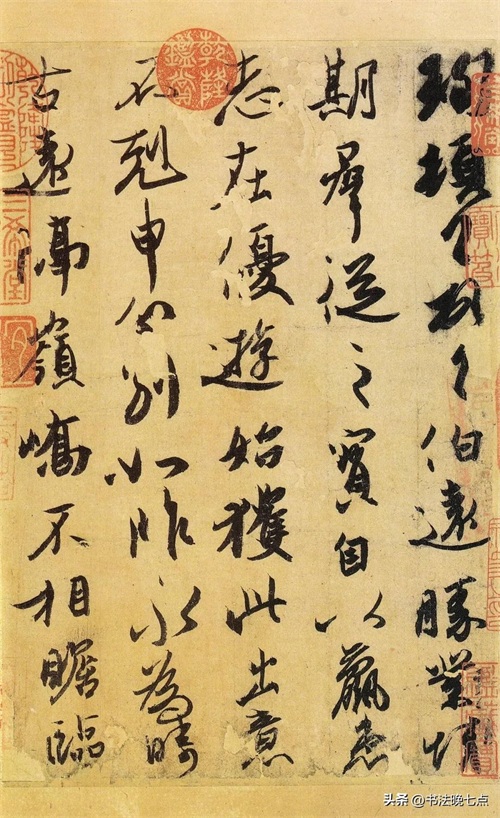 珣頓首頓首伯遠勝業情
期群從之寶自以羸患
志在優遊始獲此出意
不剋申分別如昨永為疇
古遠隔嶺嶠不相瞻臨
乾隆鑑賞
頭条 @书法晚七点